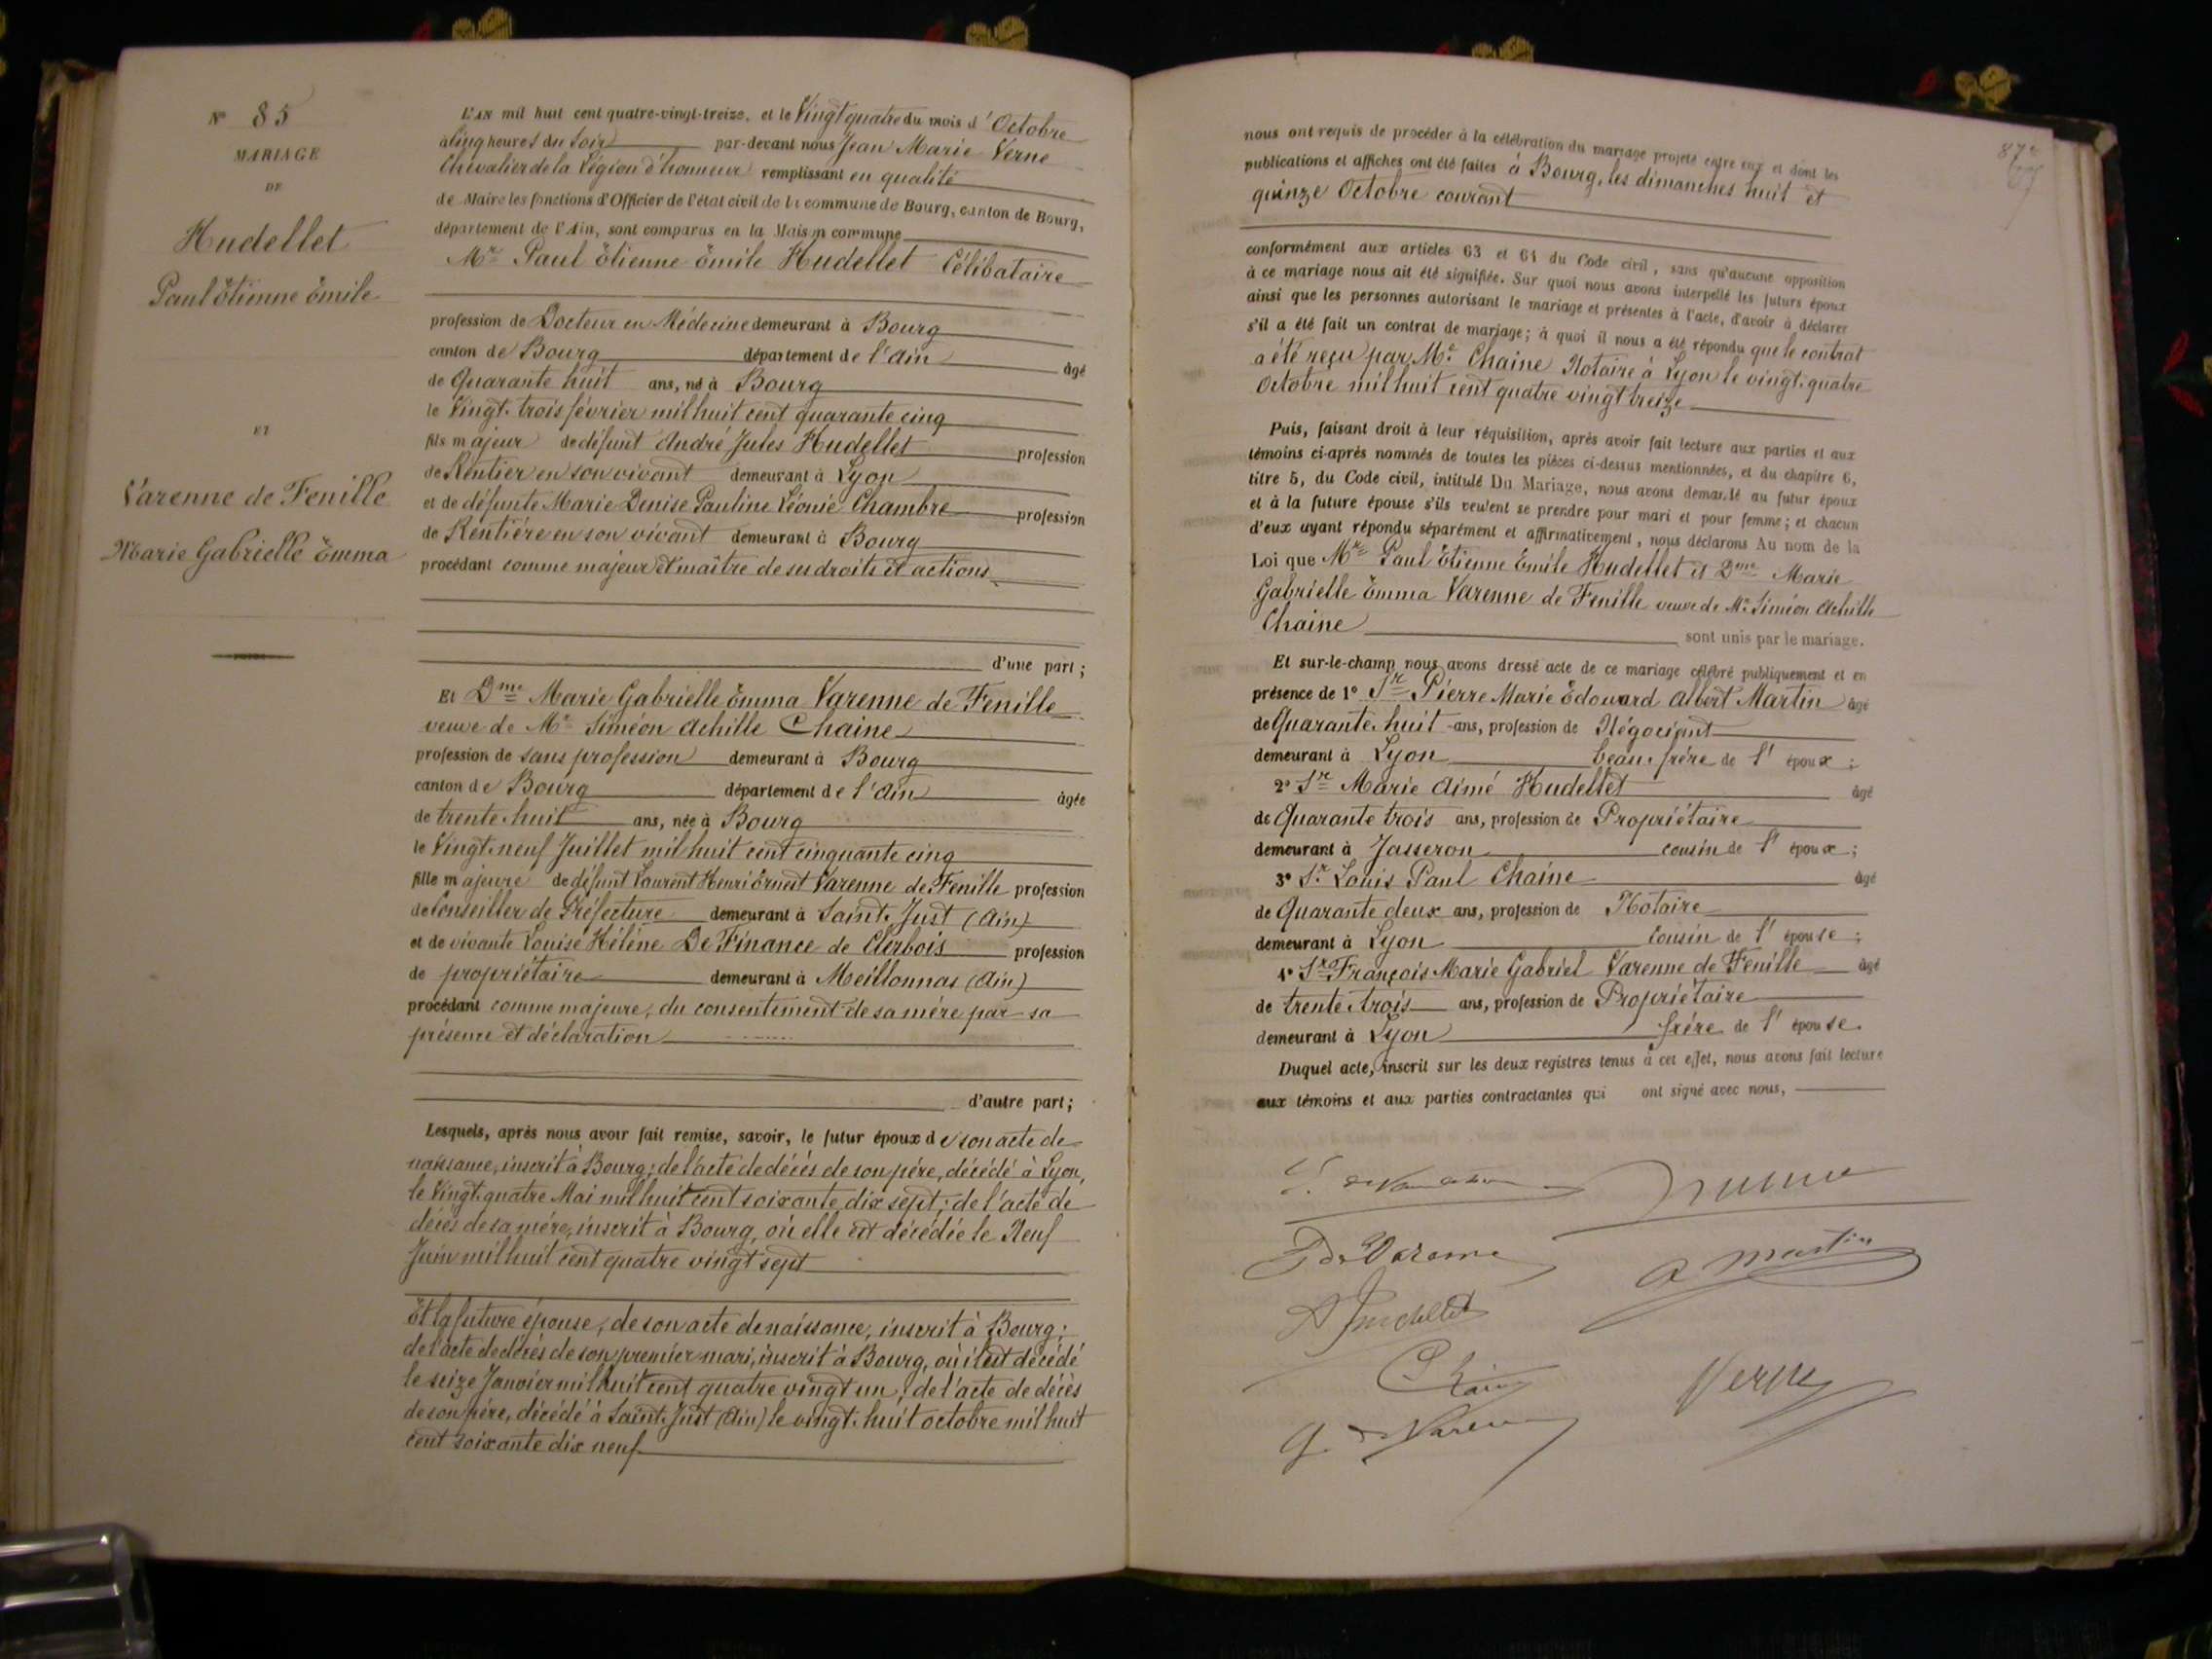 N° 85
MARIAGE
DE
Hudellet
Paul Etienne Emile
ET
Varenne de Fenille
Marie Gabrielle Emma
L'AN mil huit cent quatre-vingt-treize, et le Vingt quatre du mois d'Octobre
à Cinq heures du Soir par-devant nous Jean Marie Verne
Chevalier de la Légion d'honneur remplissant en qualité
de Maire les fonctions d'Officier de l'état civil de la commune de Bourg, canton de Bourg,
département de l'Ain, sont comparus en la Maison commune
Mr Paul Etienne Emile Hudellet Célibataire
profession de Docteur en Médecine demeurant à Bourg
canton de Bourg département de l'Ain âgé
de Quarante huit ans, né à Bourg
le Vingt-trois février mil huit cent quarante cinq
fils majeur de défunt André Jules Hudellet profession
de Rentier en son vivant demeurant à Lyon
et de défunte Marie Denise Pauline Léonie Chambre profession
de Rentière en son vivant demeurant à Bourg
procédant comme majeur et maître de ses droits et actions
d'une part;
Et Dme Marie Gabrielle Emma Varenne de Fenille
veuve de Mr Siméon Achille Chaine
profession de sans profession demeurant à Bourg
canton de Bourg département de l'Ain âgée
de trente-huit ans, née à Bourg
le Vingt-neuf Juillet mil huit cent cinquante cinq
fille majeure de défunt Laurent Henri Ernest Varenne de Fenille profession
de Conseiller de Préfecture demeurant à Saint-Just (Ain)
et de vivante Louise Hélène De Finance de Clerbois profession
de propriétaire demeurant à Meillonnas (Ain)
procédant comme majeure, du consentement de sa mère par sa
présence et déclaration
d'autre part;
Lesquels, après nous avoir fait remise, savoir, le futur époux de son acte de
naissance, inscrit à Bourg; de l'acte de décès de son père, décédé à Lyon,
le Vingt-quatre Mai mil huit cent soixante dix sept; de l'acte de
décès de sa mère, inscrit à Bourg, où elle est décédée le Neuf
Juin mil huit cent quatre vingt sept
Et la future épouse, de son acte de naissance, inscrit à Bourg;
de l'acte de décès de son premier mari, inscrit à Bourg, où il est décédé
le seize Janvier mil huit cent quatre vingt un; de l'acte de décès
de son père, décédé à Saint-Just (Ain) le vingt-huit octobre mil huit
cent soixante dix neuf
nous ont requis de procéder à la célébration du mariage projeté entre eux et dont les
publications et affiches ont été faites à Bourg, les dimanches huit et
quinze Octobre courant
conformément aux articles 63 et 64 du Code civil, sans qu'aucune opposition
à ce mariage nous ait été signifiée. Sur quoi nous avons interpellé les futurs époux
ainsi que les personnes autorisant le mariage et présentes à l'acte, d'avoir à déclarer
s'il a été fait un contrat de mariage; à quoi il nous a été répondu que le contrat
a été reçu par Me Chaine Notaire à Lyon le vingt-quatre
Octobre mil huit cent quatre vingt treize
Puis, faisant droit à leur réquisition, après avoir fait lecture aux parties et aux
témoins ci-après nommés de toutes les pièces ci-dessus mentionnées, et du chapitre 6,
titre 5, du Code civil, intitulé Du Mariage, nous avons demandé au futur époux
et à la future épouse s'ils veulent se prendre pour mari et pour femme; et chacun
d'eux ayant répondu séparément et affirmativement, nous déclarons Au nom de la
Loi que Mr Paul Etienne Emile Hudellet et Dme Marie
Gabrielle Emma Varenne de Fenille veuve de Mr Siméon Achille
Chaine sont unis par le mariage.
Et sur-le-champ nous avons dressé acte de ce mariage célébré publiquement et en
présence de 1° Sr Pierre Marie Edouard Albert Martin âgé
de Quarante-huit ans, profession de Négociant
demeurant à Lyon beau-frère de l'époux;
2° Sr Marie Aimé Hudellet âgé
de Quarante trois ans, profession de Propriétaire
demeurant à Jasseron cousin de l'époux;
3° Sr Louis Paul Chaine âgé
de Quarante deux ans, profession de Notaire
demeurant à Lyon Cousin de l'épouse;
4° Sr François Marie Gabriel Varenne de Fenille âgé
de trente-trois ans, profession de Propriétaire
demeurant à Lyon frère de l'épouse.
Duquel acte, inscrit sur les deux registres tenus à cet effet, nous avons fait lecture
aux témoins et aux parties contractantes qui ont signé avec nous,
A Martin
A Hudellet
Chaine
Verne